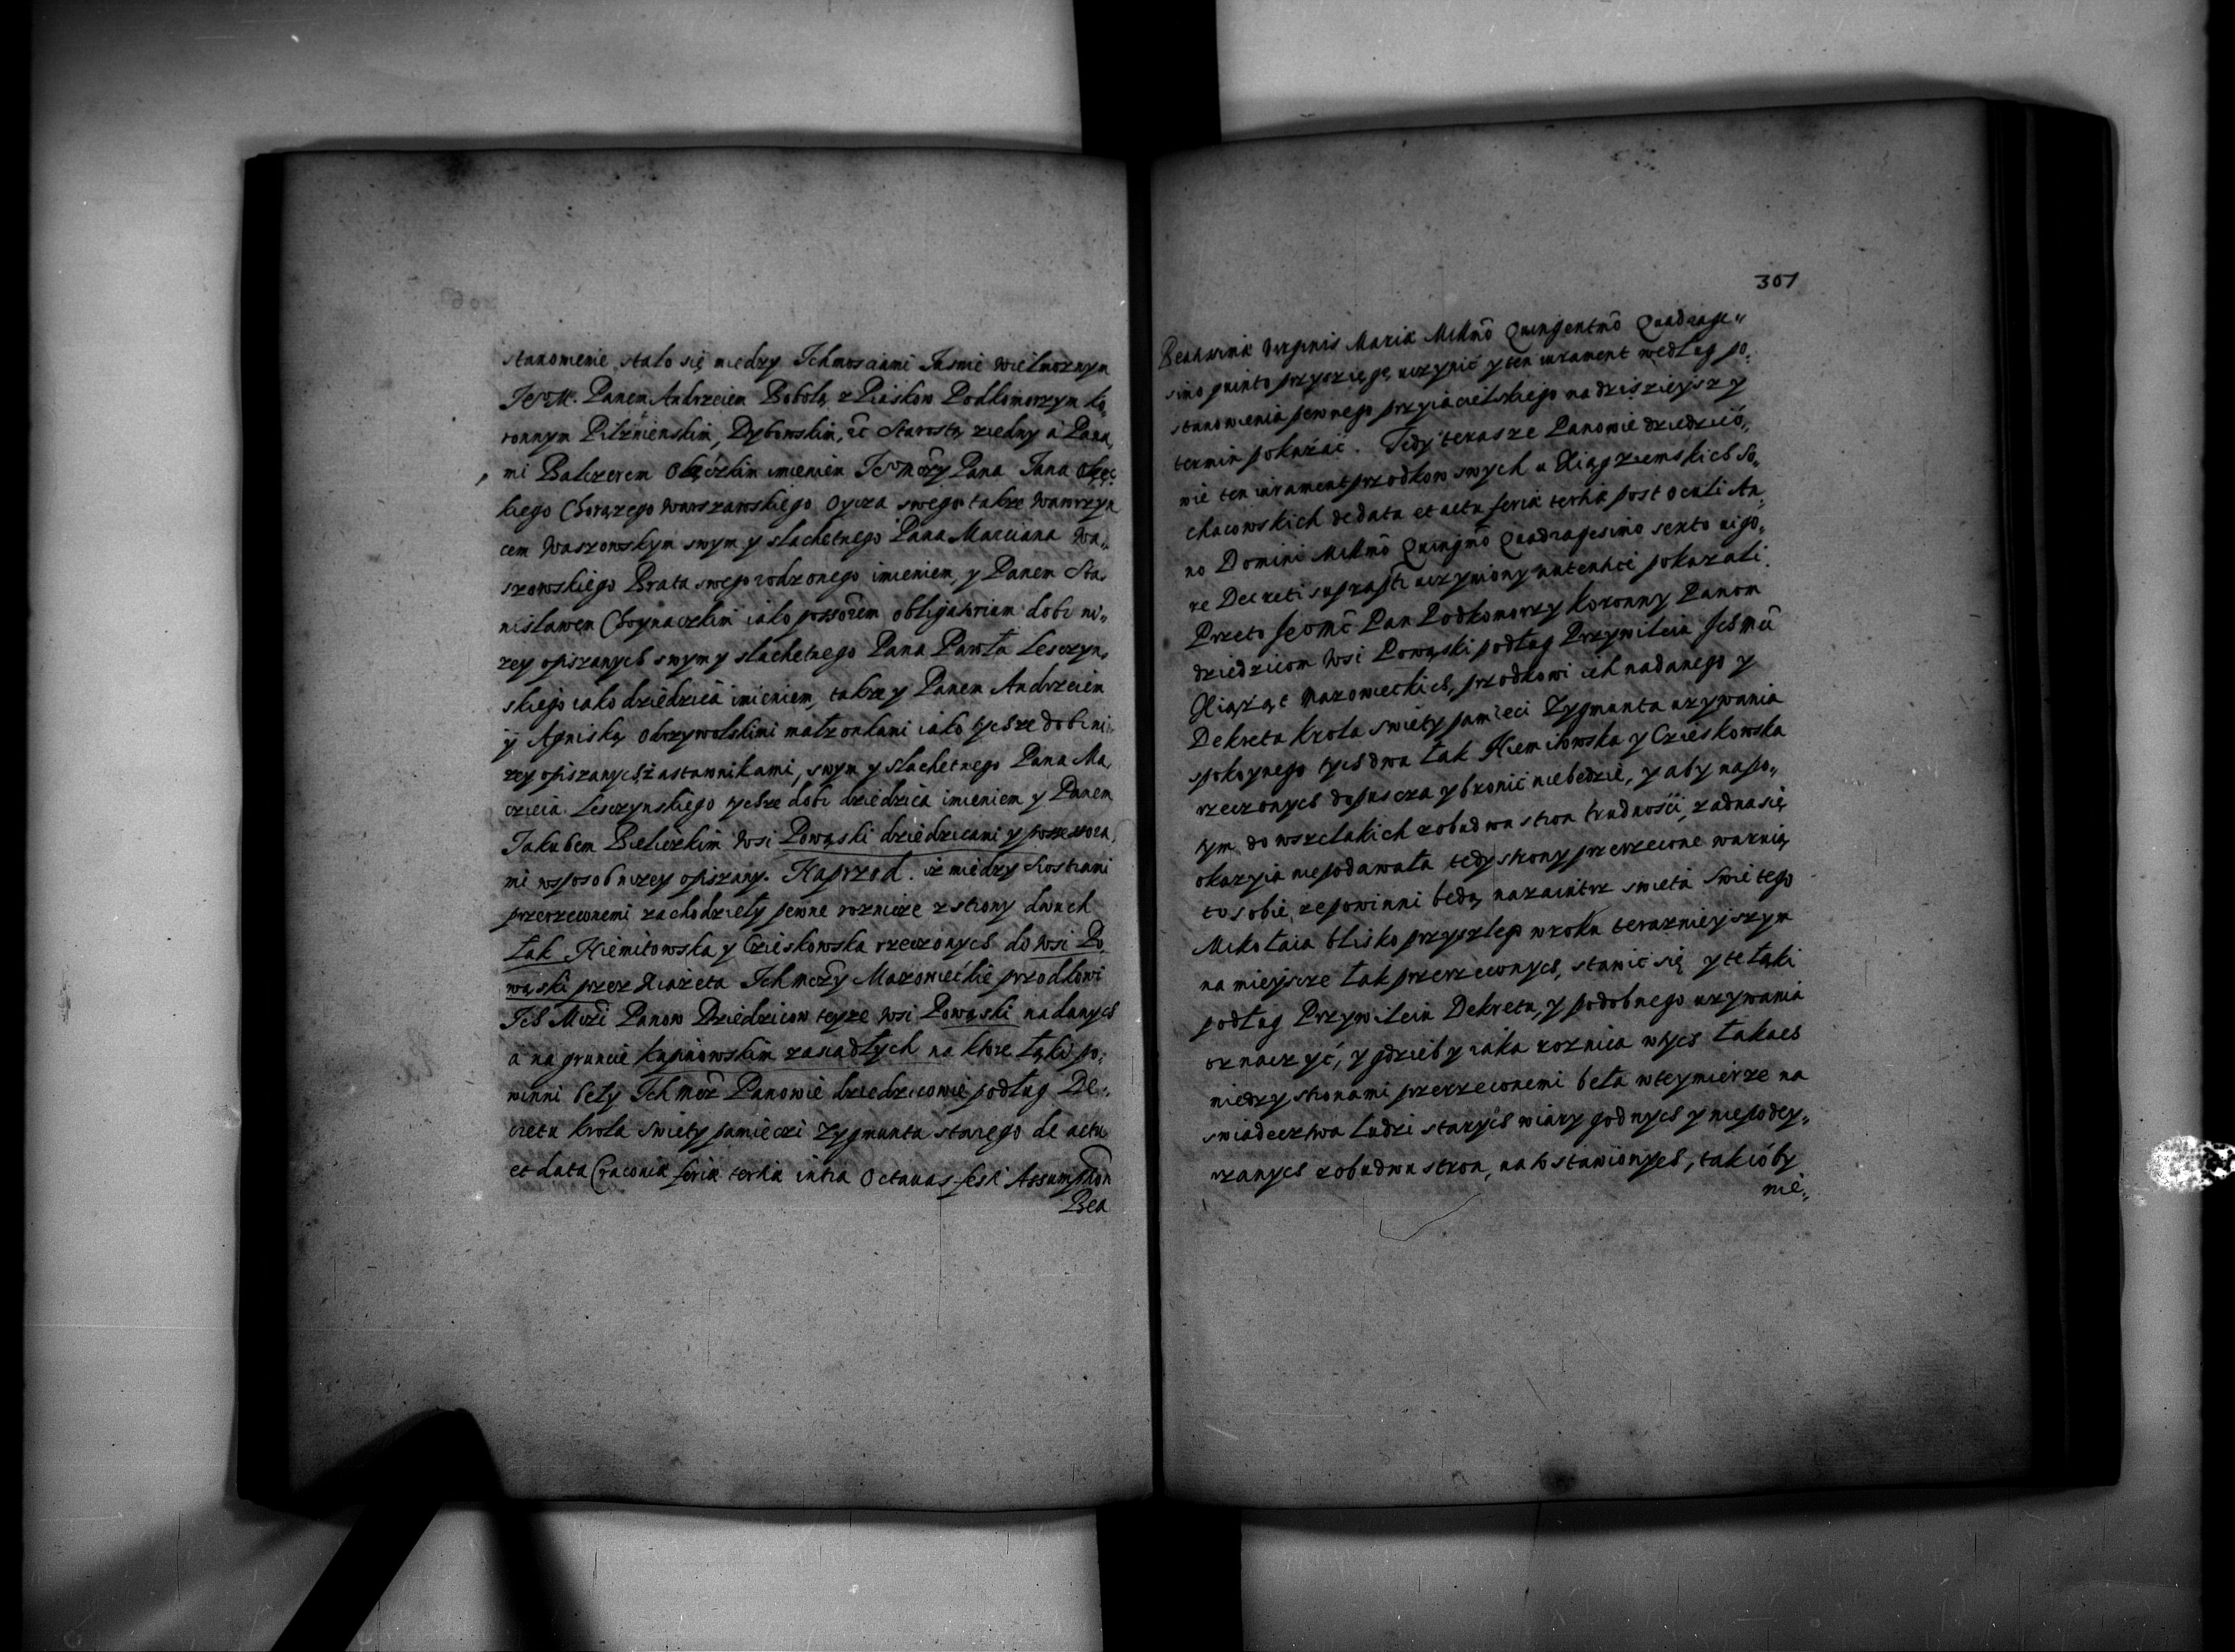 stanowienie stało się miedzy Ichmosciami Jasnie Wielmoznym
Je͠o M. Panem Andrzeiem Bobolą z Piaskow Podkomorzym ko,
ronnym Pilznienskim, Dybowskim, ẽc Starostą ziedny a Pana,
mi Balczerem Okęczkim imieniem Je͠o Mo͠szy Pana Jana Okęc,
kiego Chorązego Warszawskiego Oycza swego takze Wawrzyn
cem Waszowskym swym y slachetnego Pana Marciana Wa,,
szowskiego Brata swego rodzonego imieniem, y Panem Sta,
nisławem Choynaczkim iako possōrem obligatorium dobr ni,,
zey opiszanych swym y slachetnego Pana Pawła Lesczyn,
skiego iako dziedzica imieniem, takze y Panem Andrzeiem
y Agniszką Obrzywolskimi małzonkami iako tychze dobr ni,,
zey opiszanych zastawnikami, swym y slachetnego Pana Ma,
czieia Lesczynskiego tychze dobr dziedzica imieniem y Panem
Jakubem Bieliczkim Wsi Powąski dziedzicami y possessora,
mi wsposob nizey opiszany. Naprzod. iz miedzy Stronami
przerzeconemi zachodzieły pewne roznicze z strony dwuch
Łak Niemitowska y Czieskowska rzeczonych do Wsi Po,
wąski przez Xiązeta Ichmczy Mazowieckie przodkowi
Ich Mczi Panow Dziedzicow teyze Wsi Powąski nadanych
a na gruncie kupinowskim zasiadłych na ktore łąki po,
winni beły Ichmcz Panowie dziedzicowie podług De,,
cretu krola swiety pamieczi Zygmunta starego de actu
et data Cracoviæ feria tertia intra Octauas festi Assumption
Bea
307
Beatissimæ Virginis Mariæ Millmō Quingentmō Quadrage,,
simo quinto przyszięgę uczynić y ten iurament według po,
stanowienia pewnego przyiacielskiego na dziszieyszy
termin pokazać. Tedy terasze Panowie dziedzico,,
wie ten iurament przodkow swych u Xiąg ziemskich So,
chacowskich de data et actu feria tertia post Oculi An,
no Domini Millmō Quingmō Quadragesimo sexto uigo,
re Decreti suprasti uczyniony autentice pokazali.
Przeto Jeomc̄ Pan Podkomorzy koronny Panom
dziedzicom Wsi Powąski podług Przywileiu Ichmci
Xiąząt Mazowieckich, przodkowi ich nadanego y
Dekretu krola swiety pamieci Zygmunta uzywania
spokoynego tych dwu Łak Niemitowska y Czieskowska
rzeczonych dopuscza y bronic niebędzie, y aby napo,,
tym do wszelakich z obudwu stron trudności, zadna się
okazyia nie podawała tedy strony przerzeczone waruią
to sobie, ze powinni będą nazaiutrz swieta swietego
Mikołaia blisko przyszłego w roku teraznieyszym
na mieyscze Łak przerzeczonych, stawic się y te łąki
podług Przywileiu Dekretu, y podobnego uzywania
oznaczyć, y gdzieby iaka roznica w tych Łakach
miedzy stronami przerzeconemi beła w tey mierze na
swiadecztwa Ludzi starych wiary godnych y niepodey,,
rzanych z obudwu stron, na to stawionych, takioby
nie,,